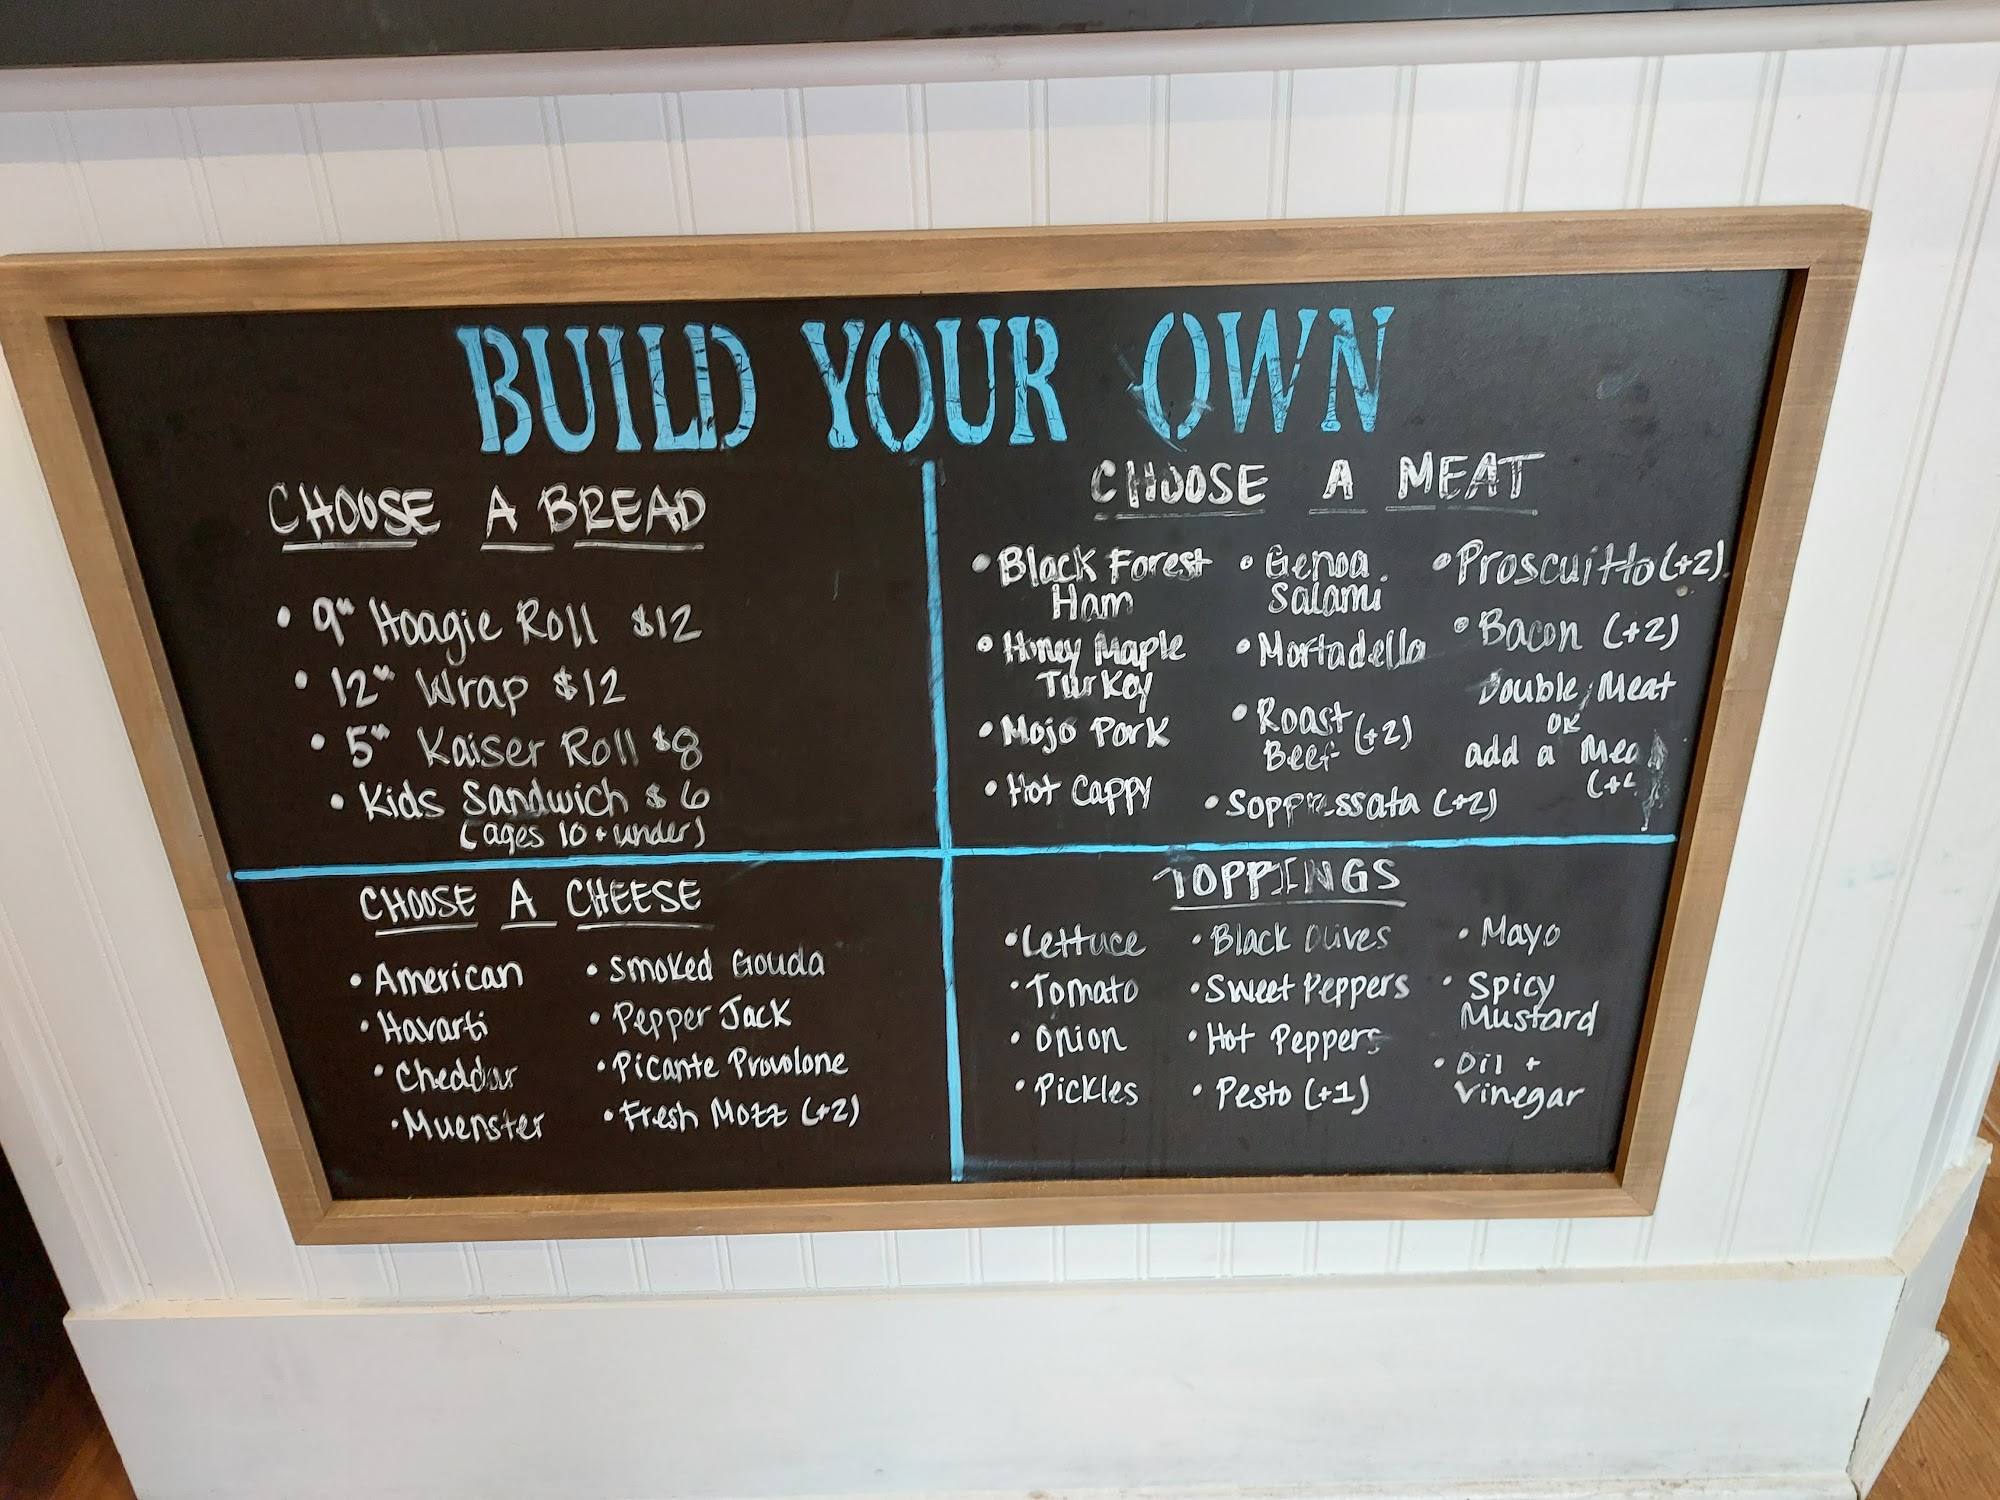 BUILD YOUR OWN
CHOOSE A BREAD
• 9" Hoagie Roll $12
• 12" Wrap $12
• 5" Kaiser Roll $8
• Kids Sandwich $6
(ages 10 + under)
CHOOSE A MEAT
• Black Forest
Ham
• Honey Maple
Turkey
• Mojo Pork
• Hot Cappy
• Genoa
Salami
• Mortadella
• Roast
Beef (+2)
• Soppressata (+2)
• Proscuitto (+2)
• Bacon (+2)
Double Meat
OR
add a
CHOOSE A CHEESE
• American
• Havarti
• Cheddar
• Muenster
• Smoked Gouda
• Pepper Jack
• Picante Provolone
• Fresh Mozz (+2)
TOPPINGS
• Lettuce
• Tomato
• Onion
• Pickles
• Black Olives
• Sweet Peppers
• Hot Peppers
• Pesto (+1)
• Mayo
• Spicy
Mustard
• Oil +
Vinegar